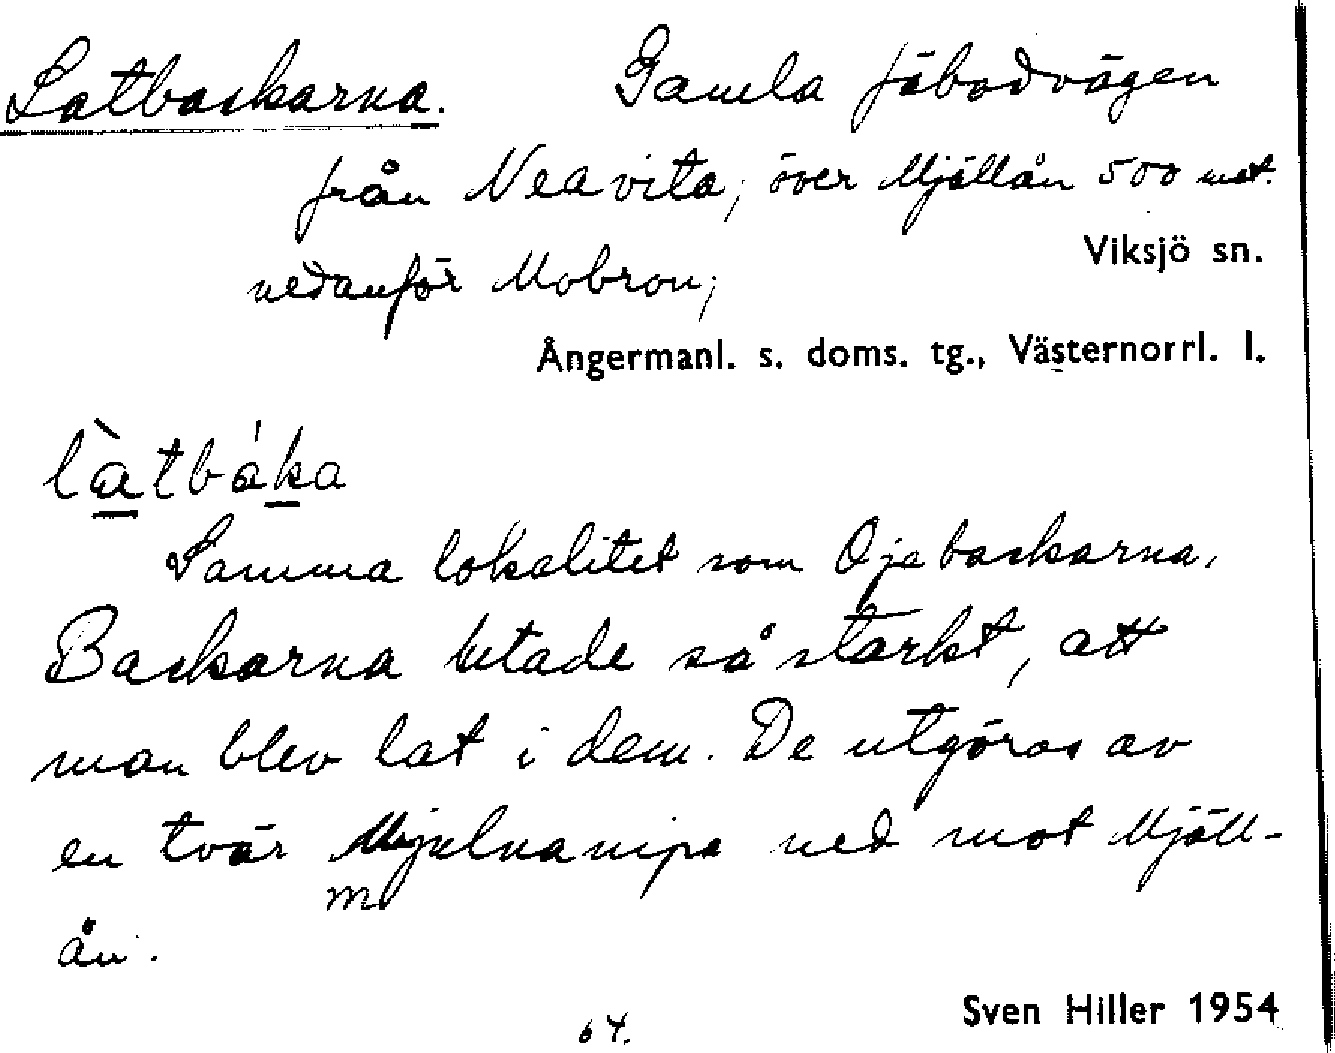 Latbackarna. Gamla fäbodvägen
från Neavita, över Mjällån 500 met.
Viksjö sn.
nedanför Mobron;
Ångermanl. s. doms. tg., Västernorrl. l.
làtbáka
Samma lokalitet som Ojabackarna.
Backarna lutade så starkt, att
man blev lat i dem. De utgöras av
en tvär Mjälnanipa ned mot Mjäll-
m
ån.
Sven Hiller 1954
64.